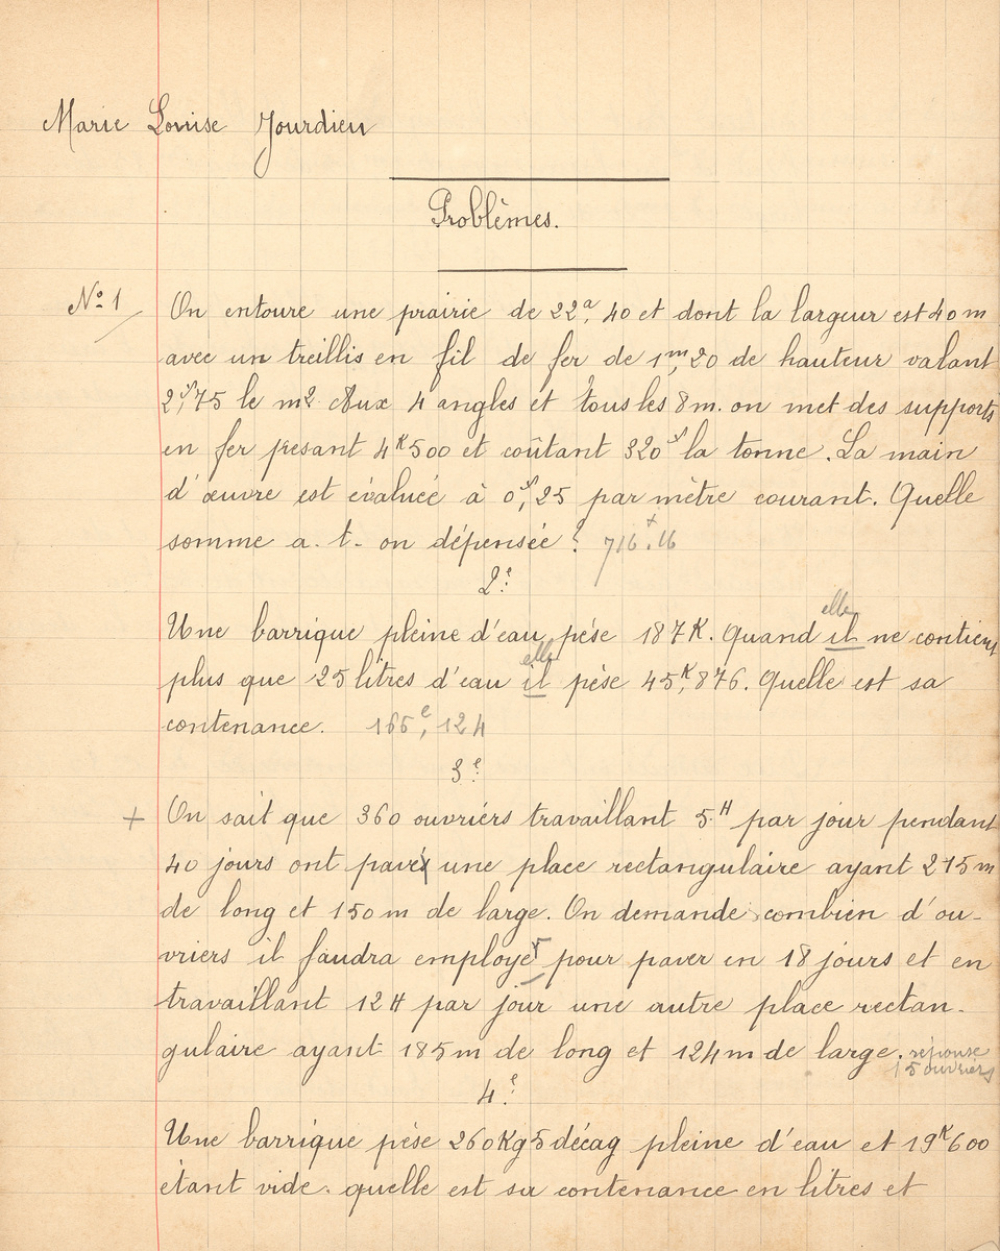 Marie Louise Jourdieu
Problèmes.
No 1
On entoure une prairie de 22a,40 et dont la largeur est 40m
avec un treillis en fil de fer de 1m,20 de hauteur valant
2f,75 le m2. Aux 4 angles et tous les 8m. on met des supports
en fer pesant 4K500 et coûtant 320f la tonne. La main
d'œuvre est évaluée à 0f,25 par mètre courant. Quelle
somme a-t-on dépensée? 716f.16
2e
elle
Une barrique pleine d'eau pèse 187K. Quand il ne contient
elle
plus que 25 litres d'eau il pèse 45K,876. Quelle est sa
contenance. 166l,124
3e
+ On sait que 360 ouvriérs travaillant 5H par jour pendant
40 jours ont pavés une place rectangulaire ayant 215m
de long et 150m de large. On demande combien d'ou-
vriers il faudra employer pour paver en 18 jours et en
travaillant 12H par jour une autre place rectan-
gulaire ayant 185m de long et 124m de large. réponse
15 ouvriers
4e
Une barrique pèse 260Kg5décag pleine d'eau et 19K600
étant vide. quelle est sa contenance en litres et